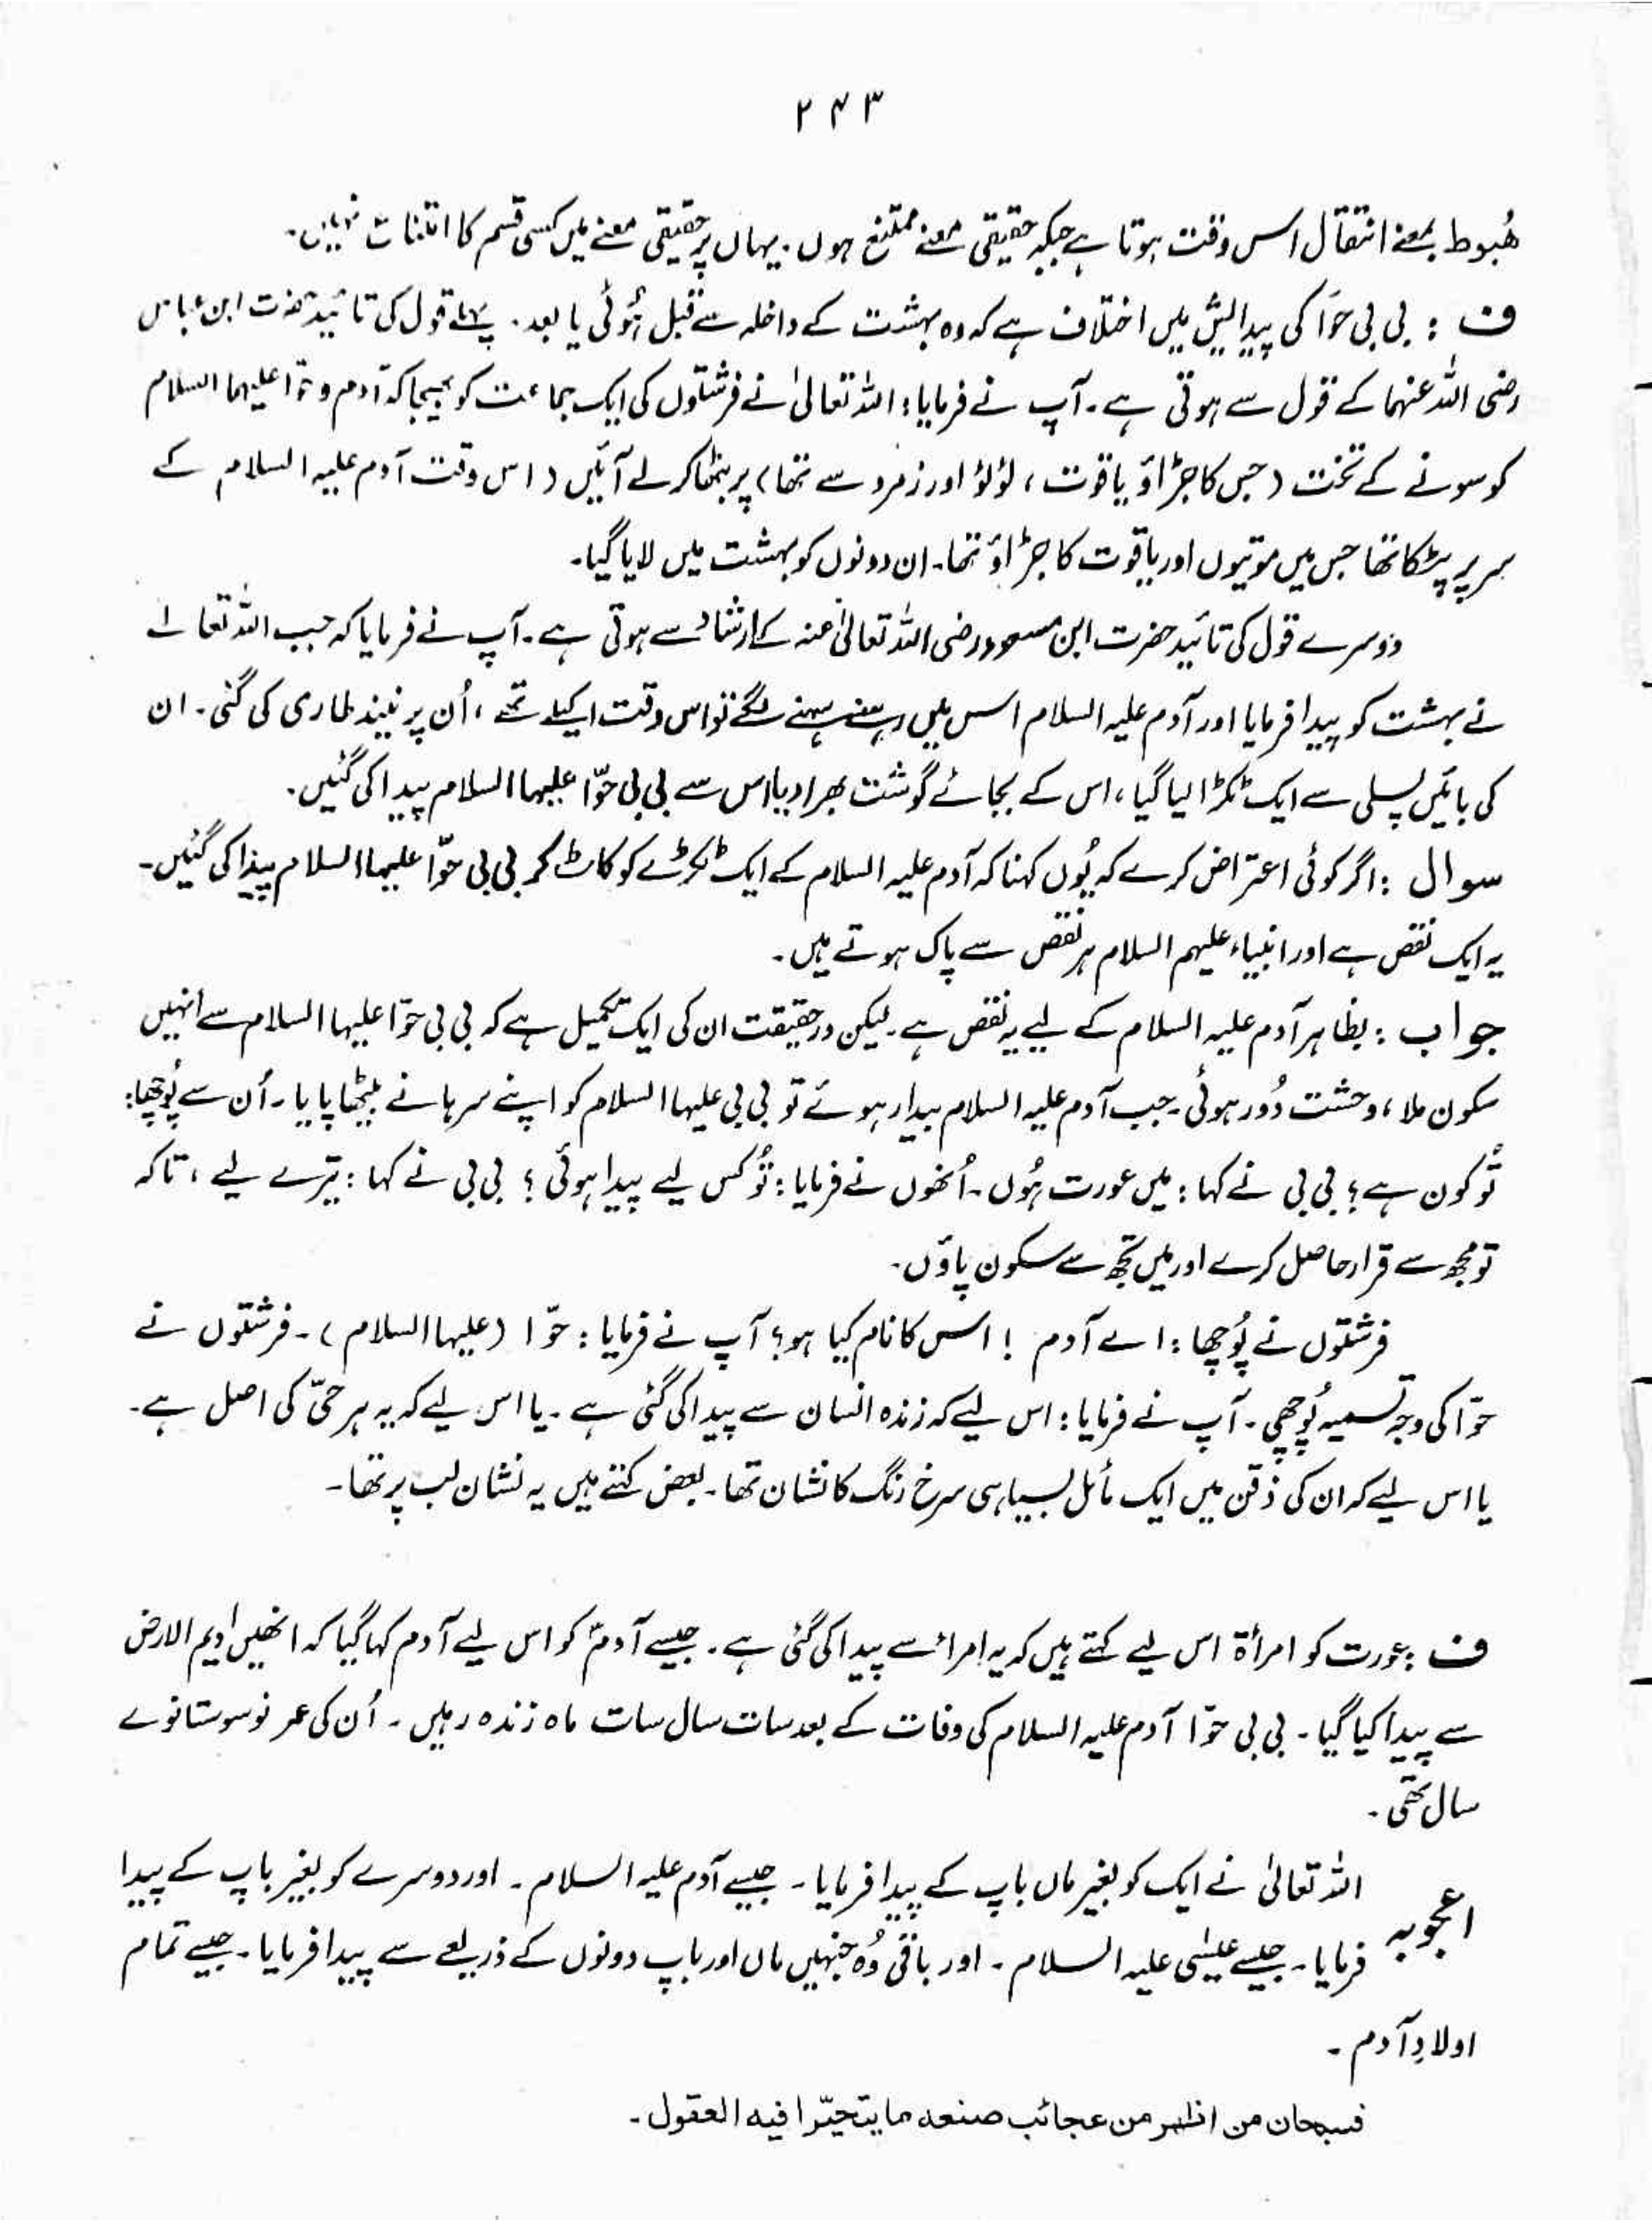 ۲۴۳
ھُبوط بمعنے انتقال اس وقت ہوتا ہے جبکہ حقیقی معنے ممتنع ہوں۔ یہاں پر حقیقی معنے میں کسی قسم کا امتناع نہیں۔
ف : بی بی حوّا کی پیدائش میں اختلاف ہے کہ وہ بہشت کے داخلہ سے قبل ہُوئی یا بعد۔ پہلے قول کی تائید حضرت ابن عباس
رضی اللہ عنہما کے قول سے ہوتی ہے۔ آپ نے فرمایا : اللہ تعالیٰ نے فرشتوں کی ایک جماعت کو بھیجا کہ آدم و حوّا علیہما السلام
کو سونے کے تخت (جس کا جڑاؤ یاقوت، لؤلؤ اور زمرد سے تھا) پر بٹھا کر لے آئیں (اس وقت آدم علیہ السلام کے
سر پر پٹکا تھا جس میں موتیوں اور یاقوت کا جڑاؤ تھا۔ ان دونوں کو بہشت میں لایا گیا۔
دوسرے قول کی تائید حضرت ابن مسعود رضی اللہ تعالیٰ عنہ کے ارشاد سے ہوتی ہے۔ آپ نے فرمایا کہ جب اللہ تعالےٰ
نے بہشت کو پیدا فرمایا اور آدم علیہ السلام اس میں رہنے سہنے لگے تو اس وقت اکیلے تھے، اُن پر نیند طاری کی گئی۔ ان
کی بائیں پسلی سے ایک ٹکڑا لیا گیا، اس کے بجائے گوشت بھرا دیا اس سے بی بی حوّا علیہا السلام پیدا کی گئیں۔
سوال : اگر کوئی اعتراض کرے کہ یُوں کہنا کہ آدم علیہ السلام کے ایک ٹکڑے کو کاٹ کر بی بی حوّا علیہا السلام پیدا کی گئیں۔
یہ ایک نقص ہے اور انبیاء علیہم السلام ہر نقص سے پاک ہوتے ہیں۔
جواب : بظاہر آدم علیہ السلام کے لیے یہ نقص ہے۔ لیکن درحقیقت ان کی ایک تکمیل ہے کہ بی بی حوّا علیہا السلام سے اُنہیں
سکون ملا، وحشت دُور ہوئی۔ جب آدم علیہ السلام بیدار ہوئے تو بی بی علیہا السلام کو اپنے سرہانے بیٹھا پایا۔ اُن سے پُوچھا:
تُو کون ہے؟ بی بی نے کہا : میں عورت ہُوں۔ اُنھوں نے فرمایا : تُو کس لیے پیدا ہوئی؟ بی بی نے کہا : تیرے لیے، تاکہ
تو مجھ سے قرار حاصل کرے اور میں تجھ سے سکون پاؤں۔
فرشتوں نے پُوچھا : اے آدم ! اس کا نام کیا ہو؟ آپ نے فرمایا : حوّا (علیہا السلام)۔ فرشتوں نے
حوّا کی وجہ تسمیہ پُوچھی۔ آپ نے فرمایا : اس لیے کہ زندہ انسان سے پیدا کی گئی ہے۔ یا اس لیے کہ یہ ہر حیّ کی اصل ہے۔
یا اس لیے کہ ان کی ذقن میں ایک مائل بسیاہی سرخ رنگ کا نشان تھا۔ بعض کہتے ہیں یہ نشان لب پر تھا۔
ف : عورت کو امرأۃ اس لیے کہتے ہیں کہ یہ امرأ سے پیدا کی گئی ہے۔ جیسے آدمؑ کو اس لیے آدم کہا گیا کہ انھیں ادیم الارض
سے پیدا کیا گیا۔ بی بی حوّا آدم علیہ السلام کی وفات کے بعد سات سال سات ماہ زندہ رہیں۔ اُن کی عمر نو سو ستانوے
سال تھی۔
اعجوبہ اللہ تعالیٰ نے ایک کو بغیر ماں باپ کے پیدا فرمایا۔ جیسے آدم علیہ السلام۔ اور دوسرے کو بغیر باپ کے پیدا
فرمایا۔ جیسے عیسٰی علیہ السلام۔ اور باقی وُہ جنہیں ماں اور باپ دونوں کے ذریعے سے پیدا فرمایا۔ جیسے تمام
اولادِ آدم۔
فسبحان من اظہر من عجائب صنعہ ما یتحیّرا فیہ العقول۔